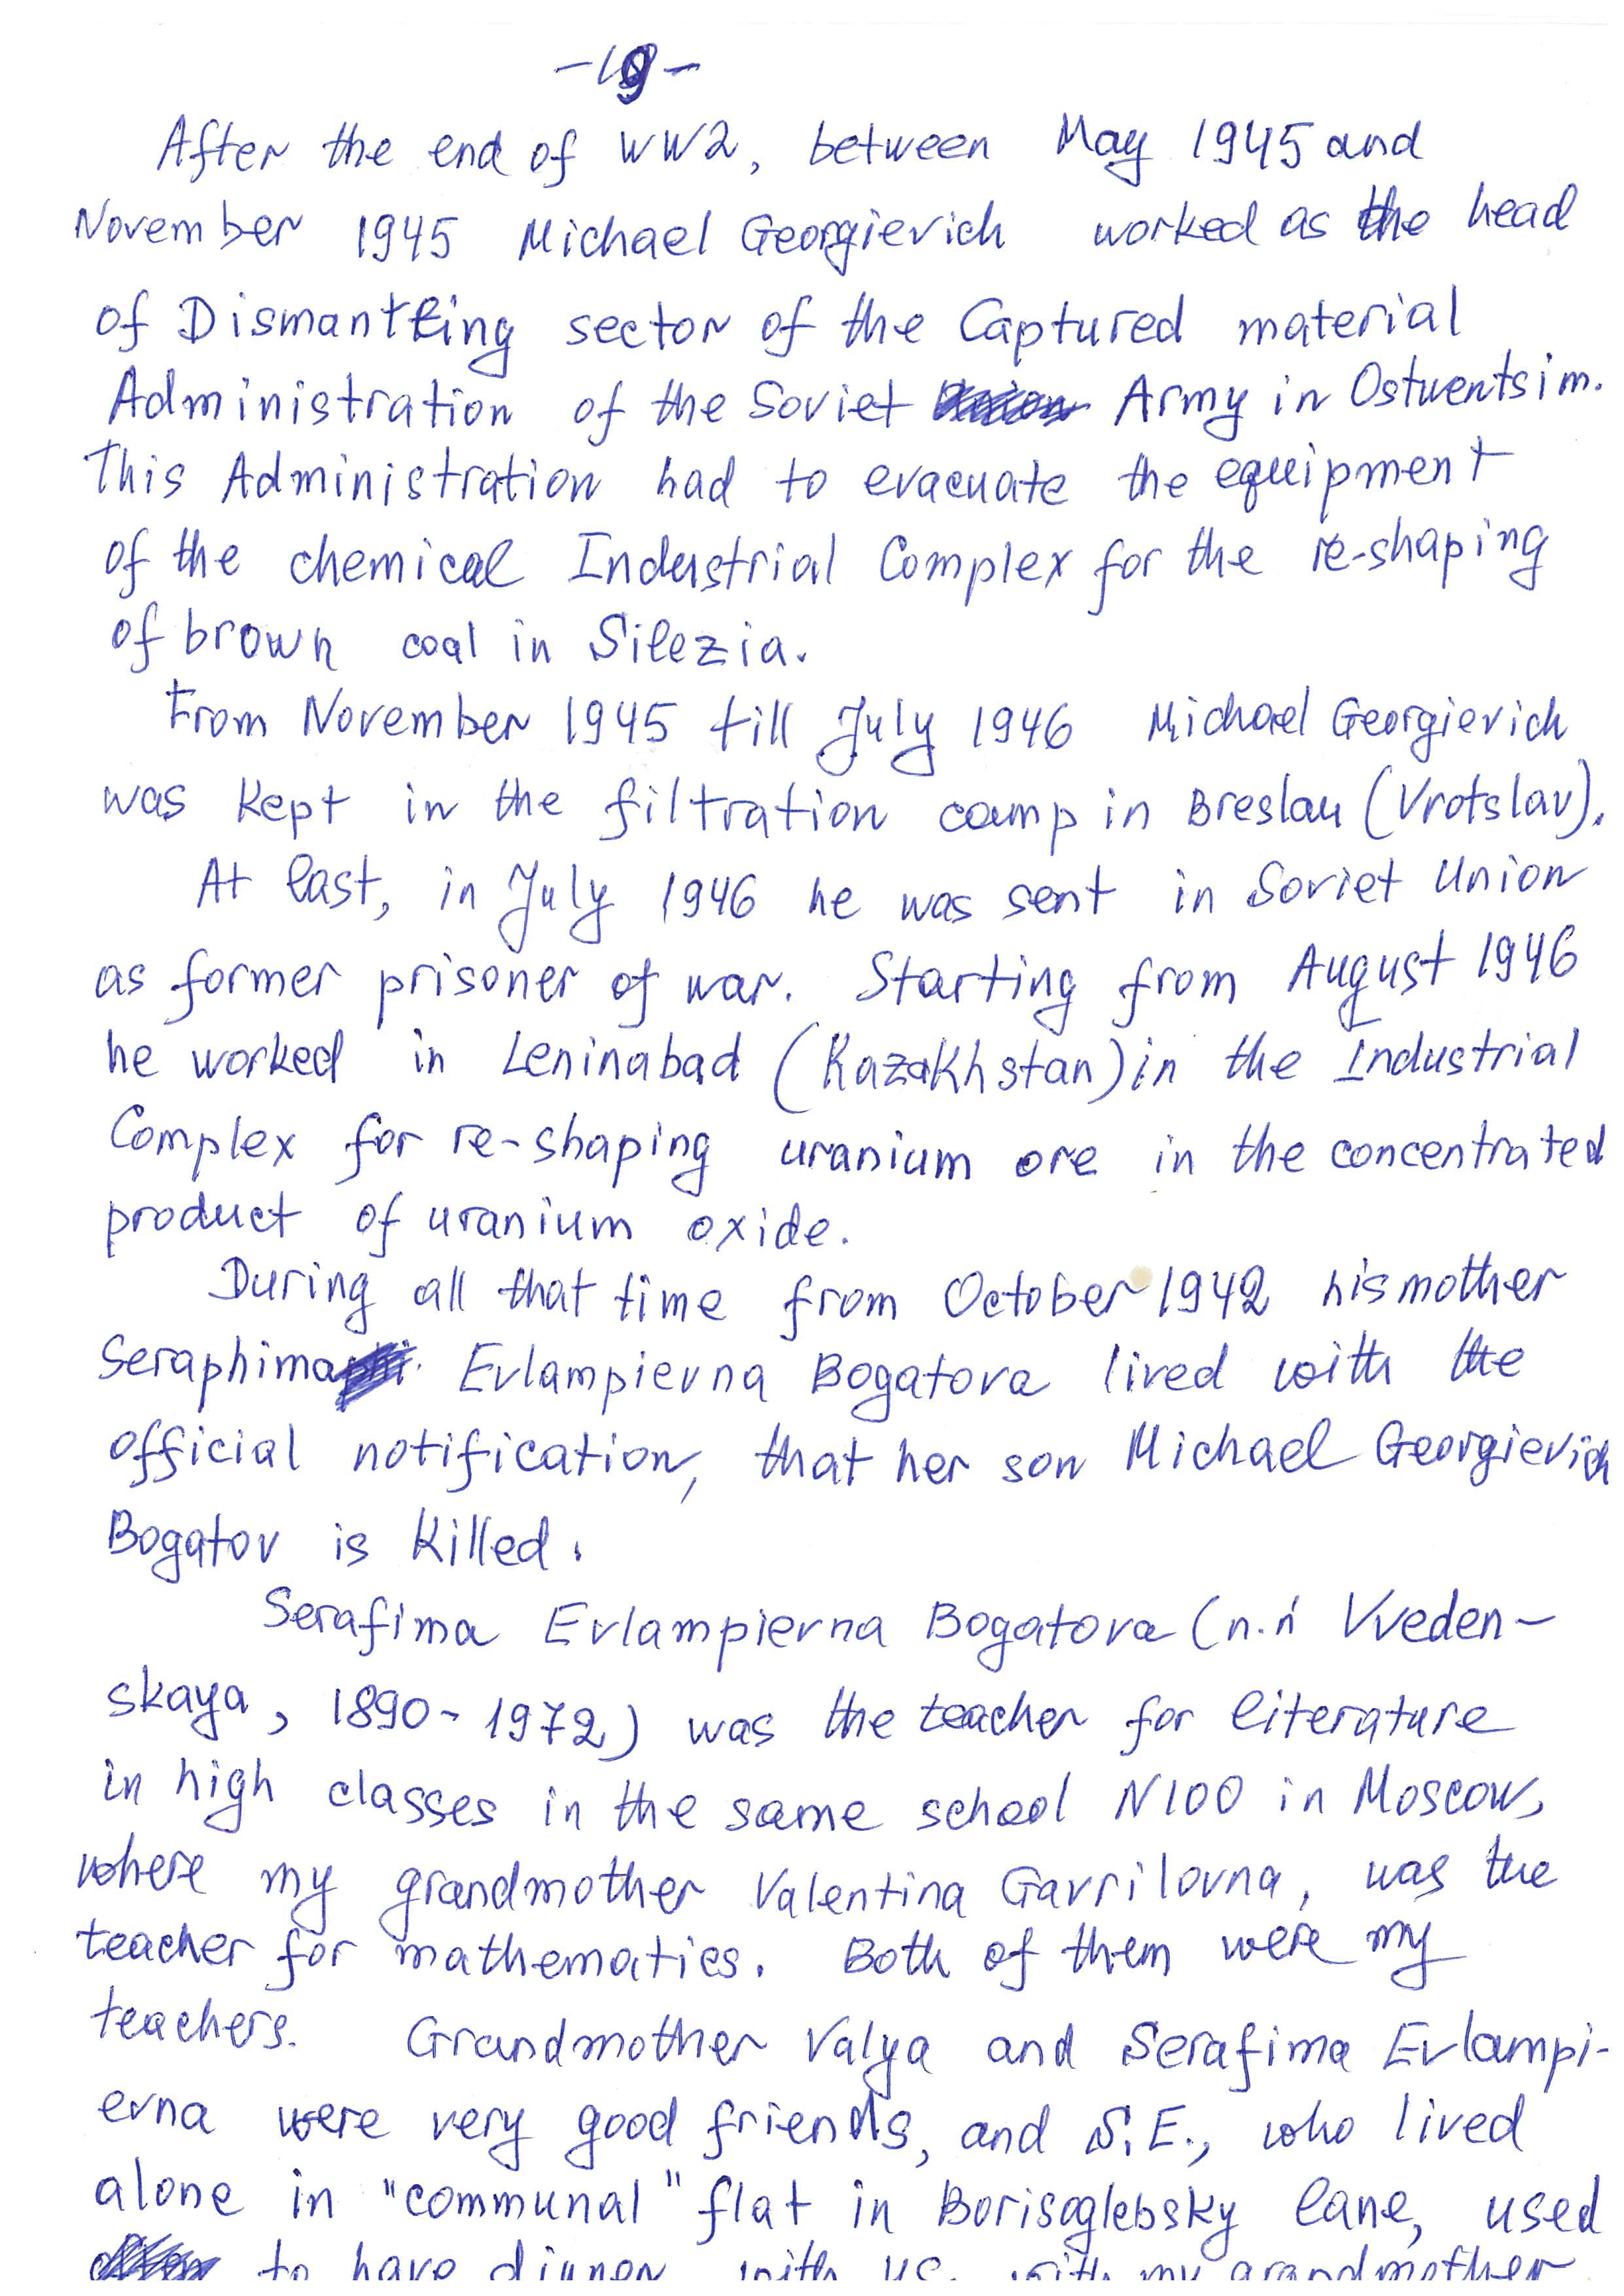 -19-
After the end of WW2, between May 1945 and
November 1945 Michael Georgievich worked as the head
of Dismantling sector of the Captured material
Administration of the Soviet Army in Ostwentsim.
This Administration had to evacuate the equipment
of the chemical Industrial Complex for the re-shaping
of brown coal in Silezia.
From November 1945 till July 1946 Michael Georgievich
was kept in the filtration camp in Breslau (Vrotslav).
At last, in July 1946 he was sent in Soviet Union
as former prisoner of war. Starting from August 1946
he worked in Leninabad (Kazakhstan) in the Industrial
Complex for re-shaping uranium ore in the concentrated
product of uranium oxide.
During all that time from October 1942 his mother
Seraphima Evlampievna Bogatova lived with the
official notification, that her son Michael Georgievich
Bogatov is killed.
Serafima Evlampievna Bogatova (n.n Vveden-
skaya, 1890-1972) was the teacher for literature
in high classes in the same school N100 in Moscow,
where my grandmother Valentina Gavrilovna, was the
teacher for mathematics. Both of them were my
teachers. Grandmother Valya and Serafima Evlampi-
evna were very good friends, and S.E., who lived
alone in "communal" flat in Borisoglebsky lane, used
to have dinner with us, with my grandmother